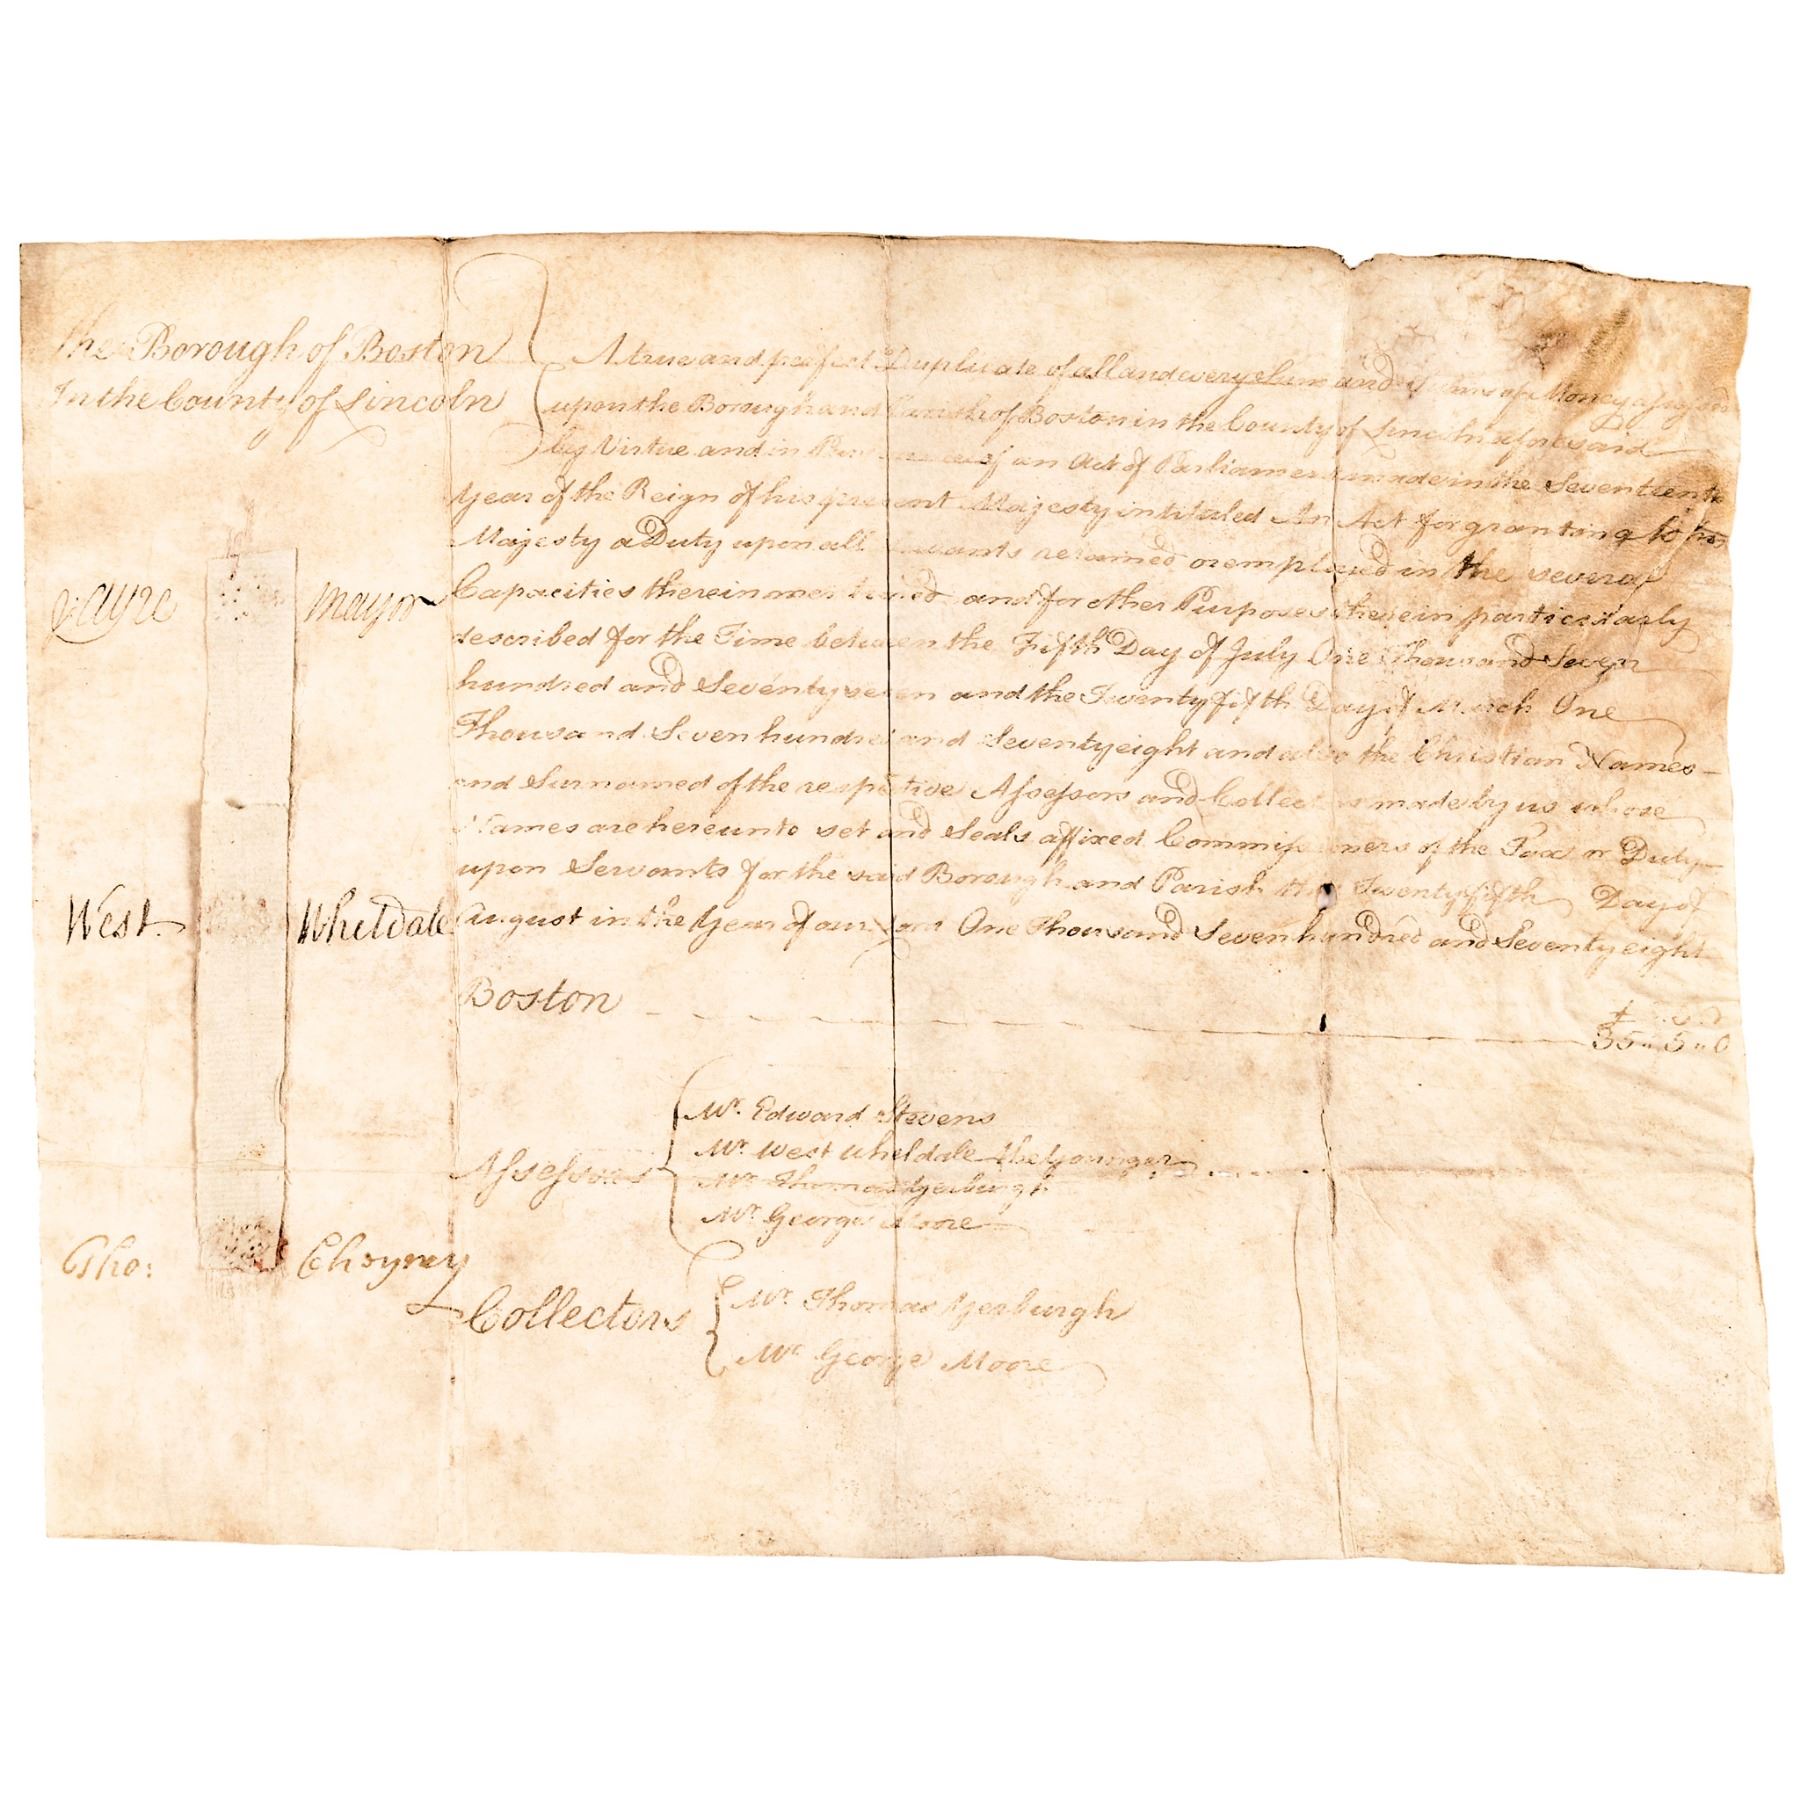 The Borough of Boston
In the County of Lincoln
A true and perfect Duplicate of all and every the Sum and Sums of Money assessed
upon the Borough and Parish of Boston in the County of Lincoln aforesaid
by Virtue and in Pursuance of an Act of Parliament made in the Seventeenth
Year of the Reign of his present Majesty intituled An Act for granting to his
Majesty a Duty upon all Servants retained or employed in the several
Capacities therein mentioned and for other Purposes therein particularly
described for the Time between the Fifth Day of July One Thousand Seven
hundred and Seventy seven and the Twenty fifth Day of March One
Thousand Seven hundred and Seventy eight and also the Christian Names
and Surnames of the respective Assessors and Collectors made by us whose
Names are hereunto set and Seals affixed Commissioners of the Tax or Duty
upon Servants for the said Borough and Parish this Twenty fifth Day of
August in the Year of our Lord One Thousand Seven hundred and Seventy eight
Ayre Mayor
West Wheldale
Tho: Cheyney
Boston
35 " 5 " 0
Assessors
Mr. Edward Stevens
Mr. West Wheldale the Younger
Mr. Thomas Yerburgh
Mr. George Moore
Collectors
Mr. Thomas Yerburgh
Mr. George Moore